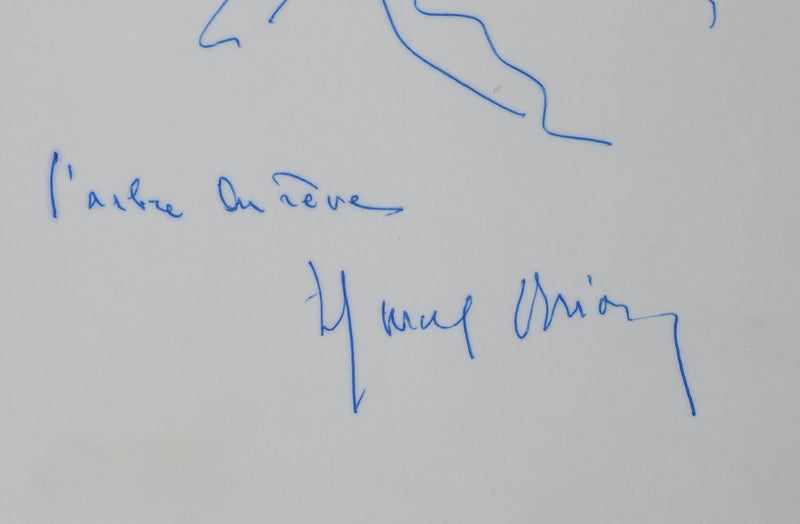 l'arbre du rêve
Marcel Brion